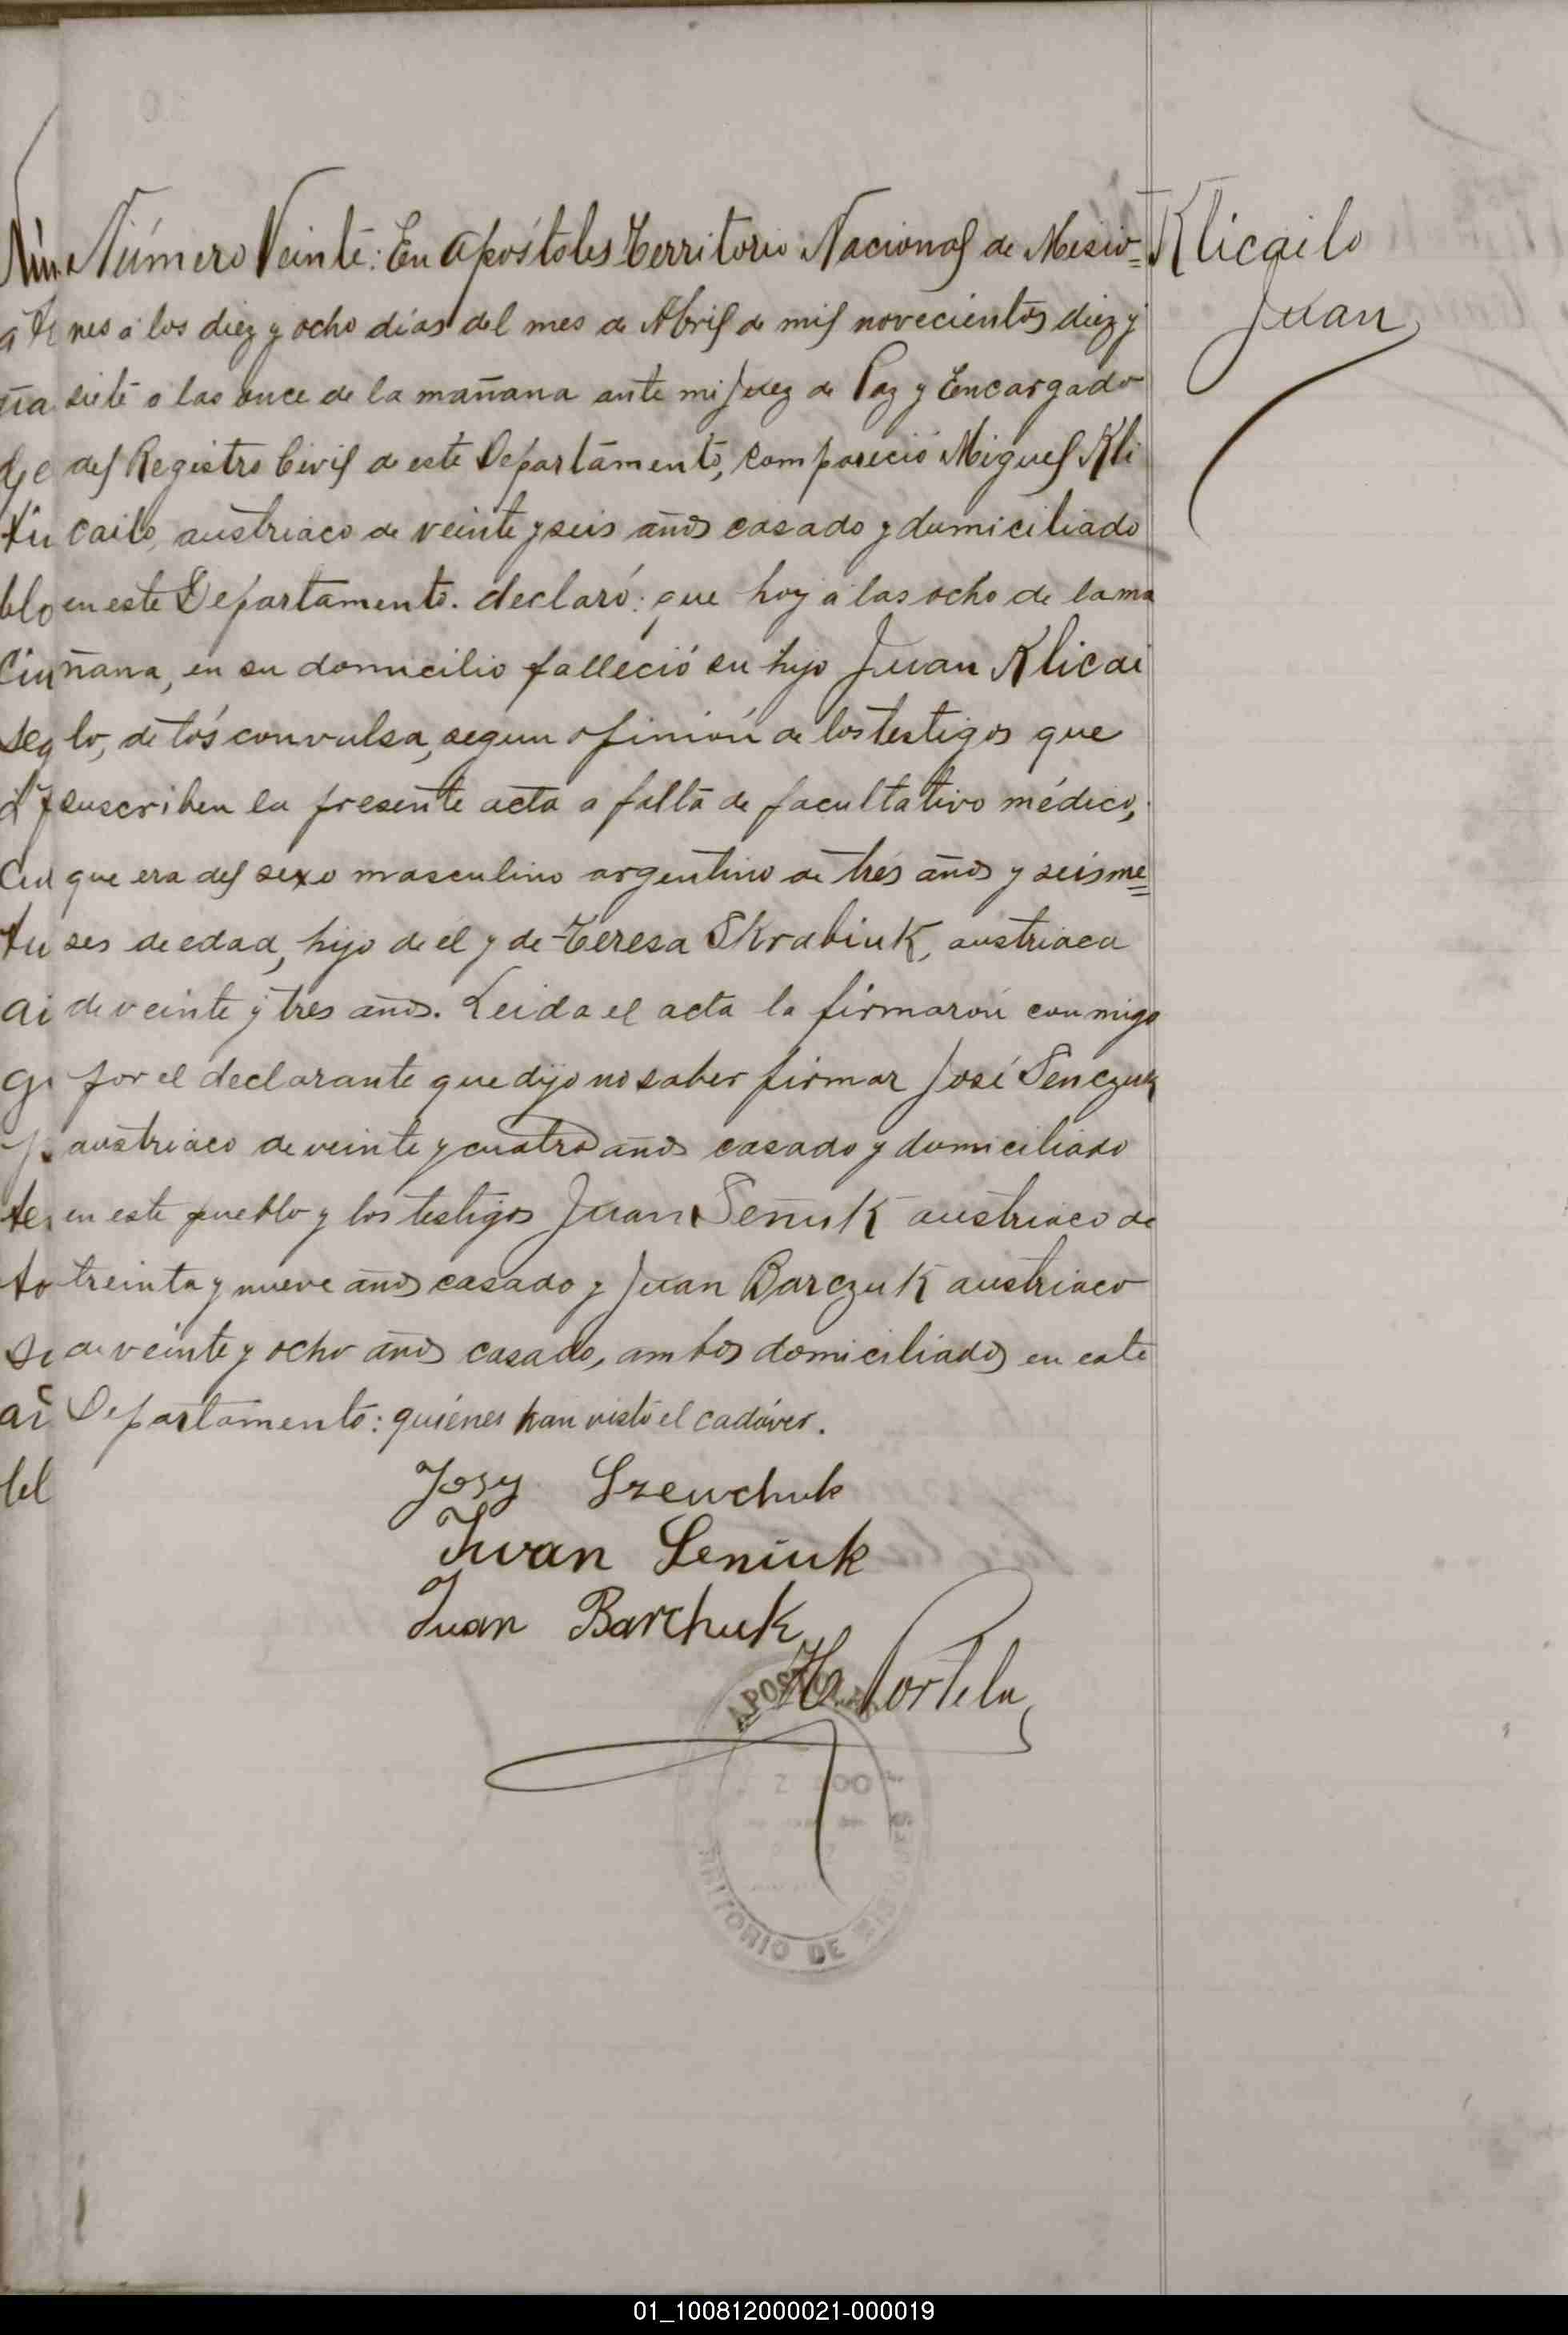 Número Veinte: En Apóstoles Territorio Nacional de Misio=
nes a los diez y ocho días del mes de Abril de mil novecientos diez y
siete a las once de la mañana ante mi Juez de Paz y Encargado
del Registro Civil de este Departamento, compareció Miguel Kli
cailo, austriaco de veinte y seis años casado y domiciliado
en este Departamento. declaró: que hoy a las ocho de la ma
ñana, en su domicilio falleció su hijo Juan Klicai
lo, de tós convulsa, segun opinión de los testigos que
suscriben la presente acta a falta de facultativo médico,
que era del sexo masculino argentino de tres años y seis me=
ses de edad, hijo de él y de Teresa Skrabiuk, austriaca
de veinte y tres años. Leida el acta la firmaron conmigo
por el declarante que dijo no saber firmar José Senczuk
austriaco de veinte y cuatro años casado y domiciliado
en este pueblo y los testigos Juan Señuk austriaco de
treinta y nueve años casado y Juan Barczuk austriaco
de veinte y ocho años casado, ambos domiciliados en este
Departamento: quiénes han visto el cadáver.
Klicailo
Juan
Josy Szewchuk
Iwan Seniuk
Juan Barchuk
H Portela
APOSTOL
TORIO DE MISIONES
01_100812000021-000019